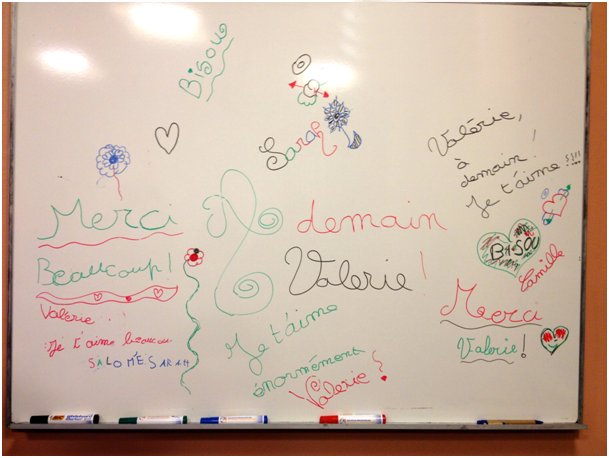 Bisou
Sarah
Merci
Beaucoup!
Valérie..
Je t'aime beaucou
SALOMÉ SARAH
À demain
Valerie!
Je t'aime
énormément
Valérie!
Valérie,
à
demain!
Je t'aime!!!!
BISOU
Camille
Merci
Valerie!
BIC